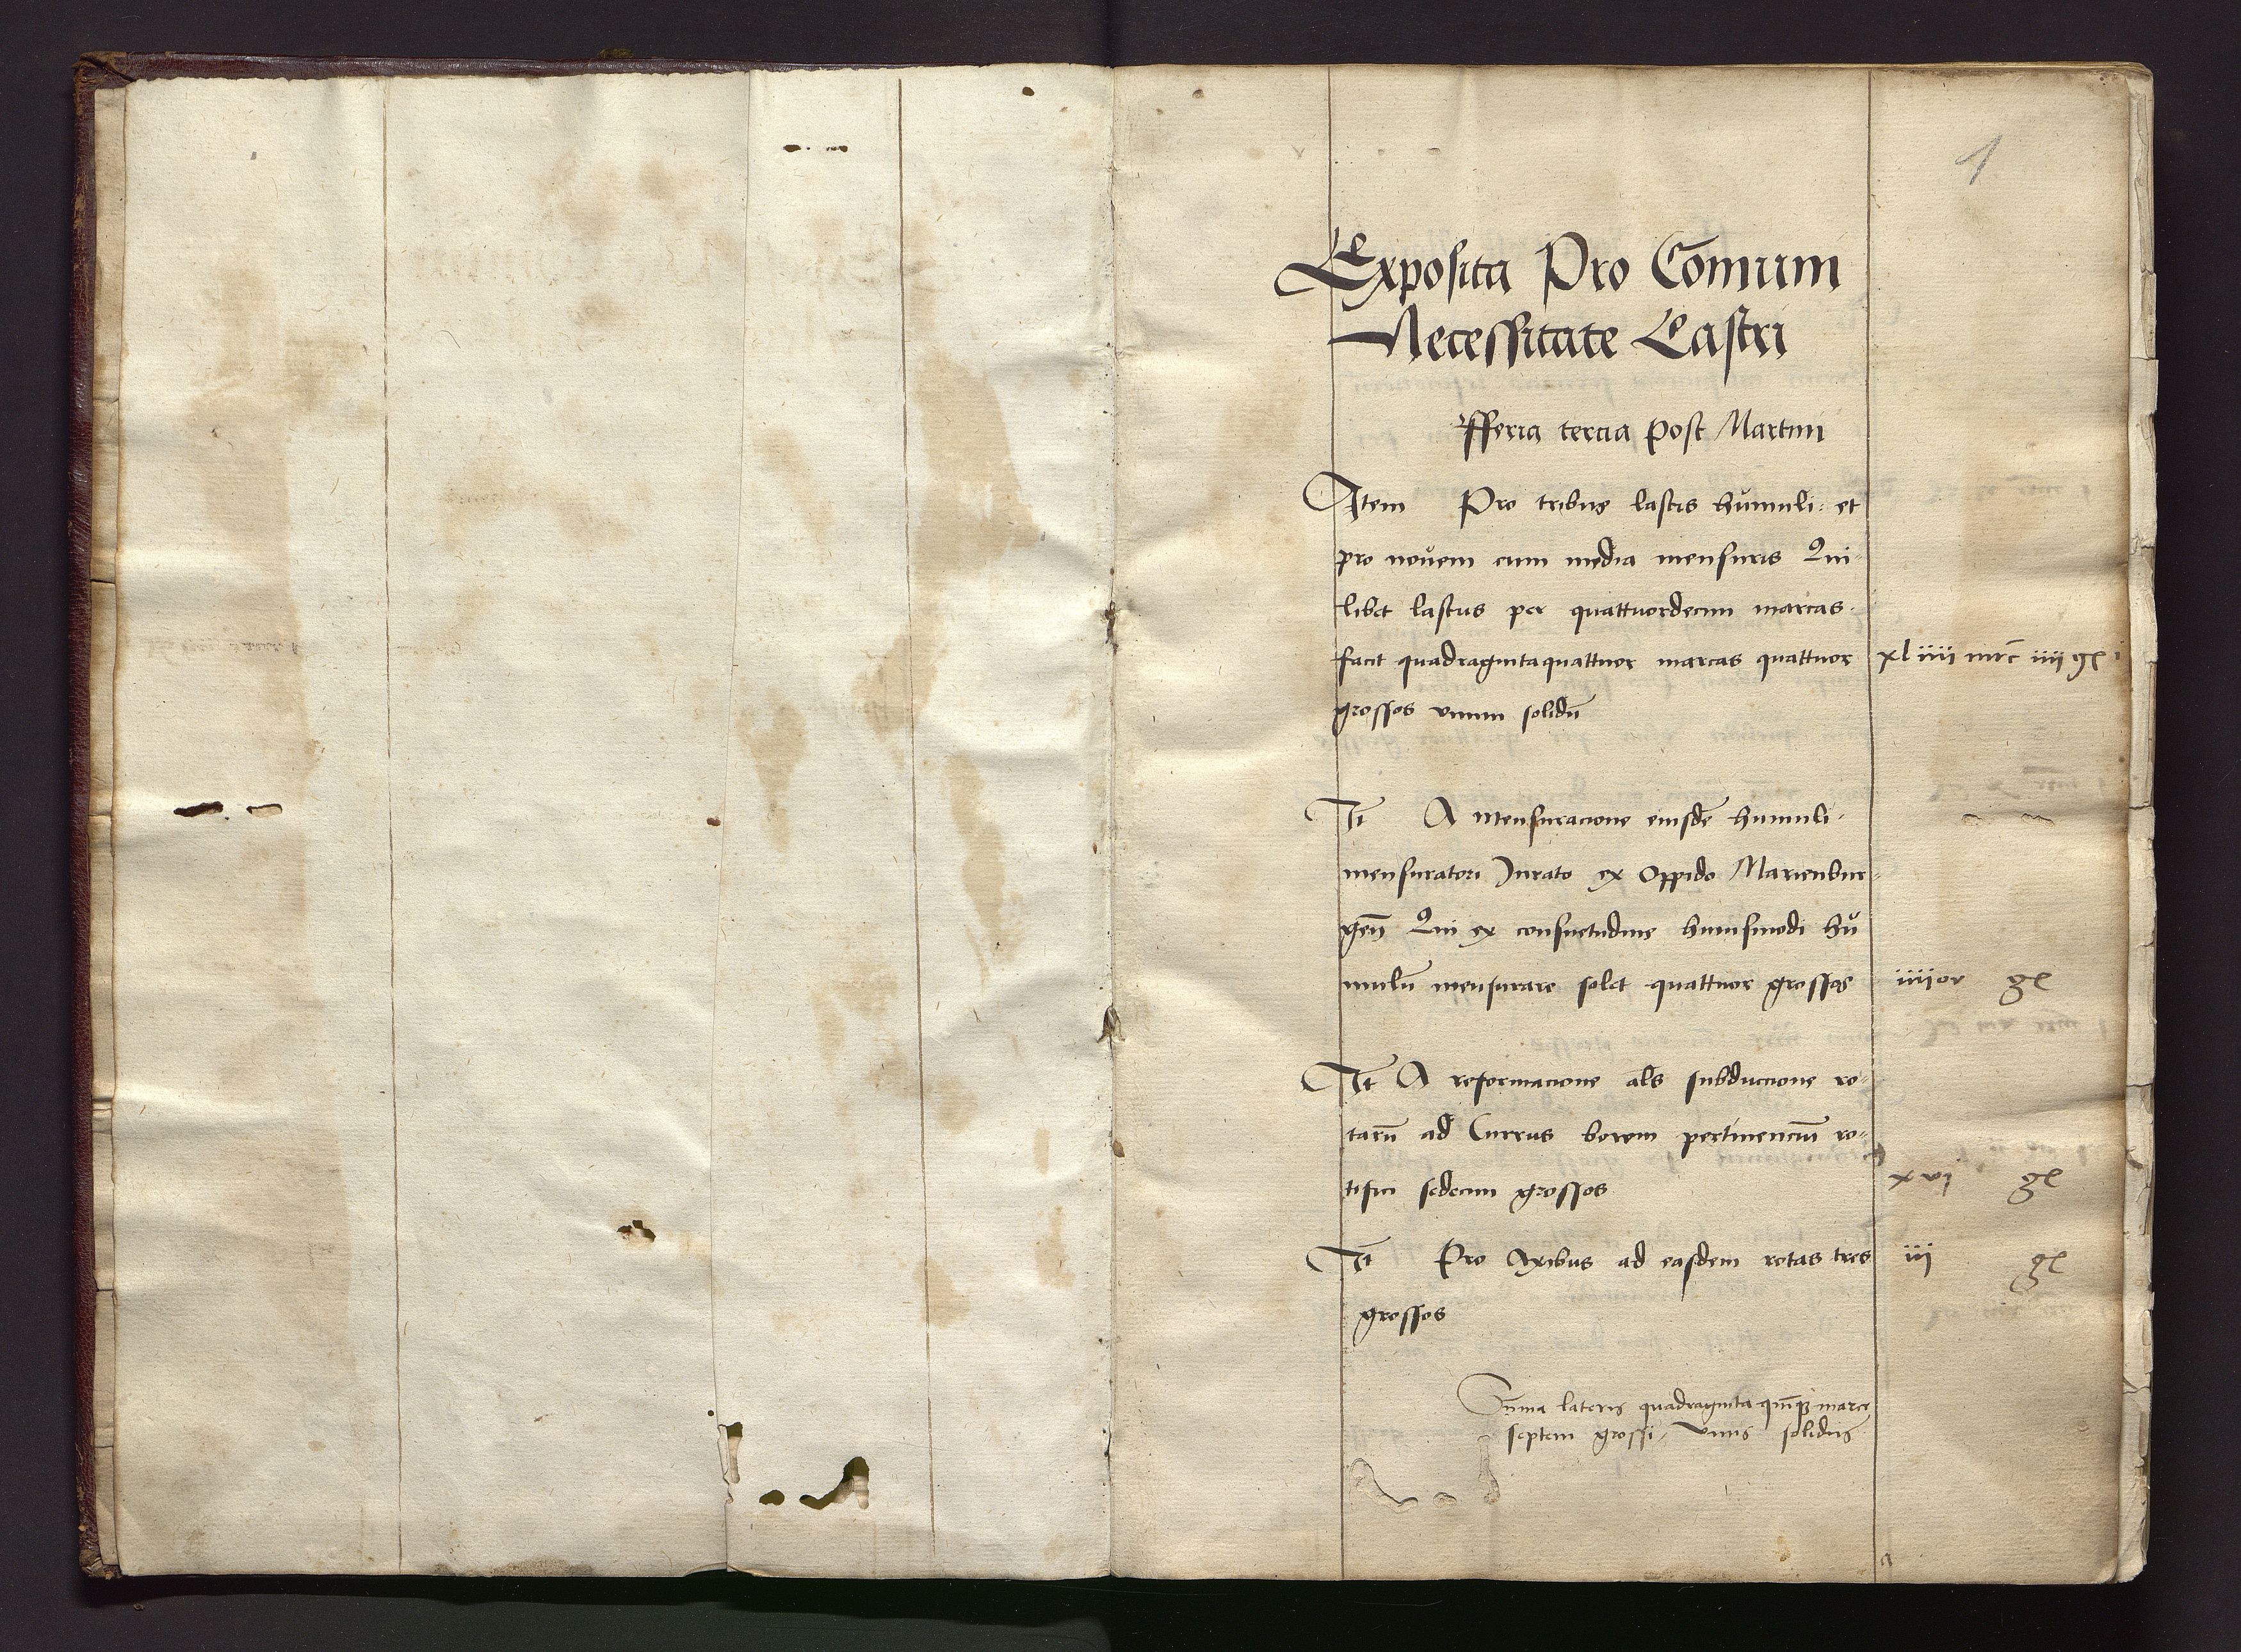 1
Exposita Pro Comuni
Necessitate Castri
fferia tercia post Martini
Item Pro tribus lastis humuli: et
pro novem cum media mensuris Qui-
libet lastus per quattuordecim marcas.
facit quadragintaquattuor marcas quattuor
xliiii mrc iiii gr i
grossos vnum solidū
It A mensuracione eiusdē humuli.
mensuratori Jurato ex Oppido Marienbur-
geñ Qui ex consuetudine huiusmodi hu
mulū mensurare solet quattuor grossos
iiiior gr
It A reformacione als subduccione ro-
tarū ad Currus bovem pertinenciū ro-
tifici sedecim grossos
xvi gr
It Pro Axibus ad easdem rotas tres
iii gr
grossos
Sūma lateris quadraginta quīqȝ marce
septem grossi, vnus solidus